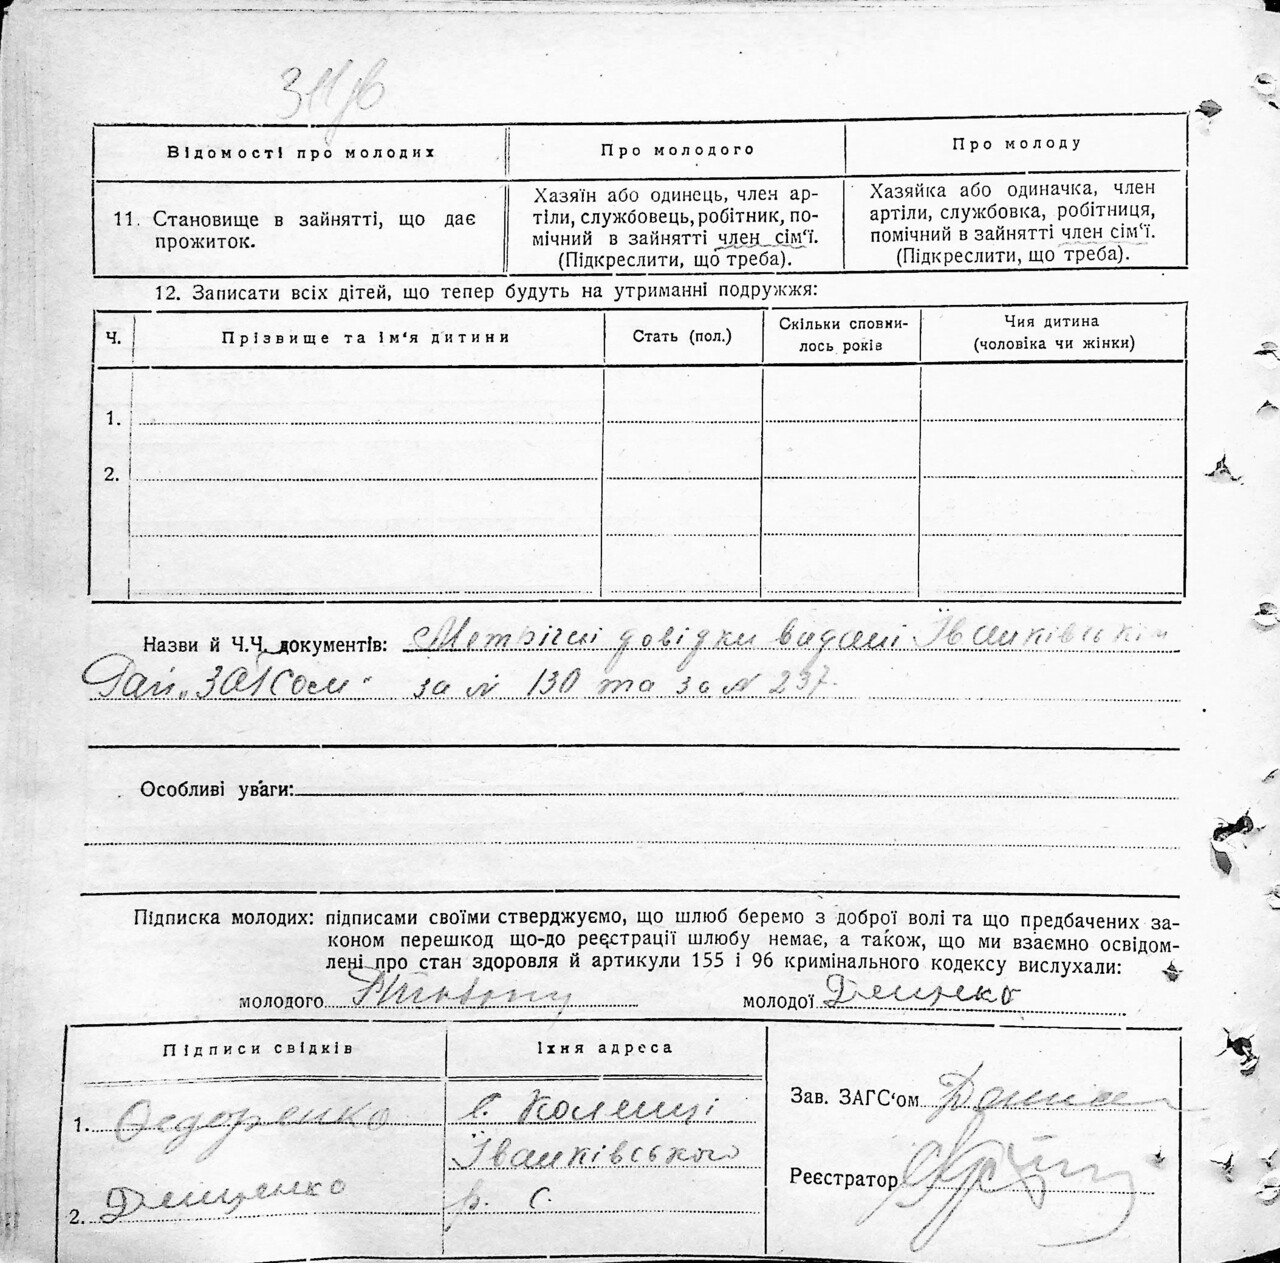 Відомості про молодих
Про молодого
Про молоду
11. Становище в зайнятті, що дає
прожиток.
Хазяїн або одинець, член ар-
тіли, службовець, робітник, по-
мічний в зайнятті член сім'ї.
(Підкреслити, що треба).
Хазяйка або одиначка, член
артіли, службовка, робітниця,
помічний в зайнятті член сім'ї.
(Підкреслити, що треба).
12. Записати всіх дітей, що тепер будуть на утриманні подружжя:
Ч.
Прізвище та ім'я дитини
Стать (пол.)
Скільки сповни-
лось років
Чия дитина
(чоловіка чи жінки)
1.
2.
Назви й Ч.Ч. документів: Метрічні довідки видані Їванківськім
Рай. "ЗАГСом" за № 130 та за № 237.
Особливі уваги:
Підписка молодих: підписами своїми стверджуємо, що шлюб беремо з доброї волі та що предбачених за-
коном перешкод що-до реєстрації шлюбу немає, а також, що ми взаємно освідом-
лені про стан здоровля й артикули 155 і 96 кримінального кодексу вислухали:
молодого
молодої
Підписи свідків
Їхня адреса
1. Федоренко
с. Коленці
Їванківського
р. С.
2.
Зав. ЗАГС'ом
Реєстратор